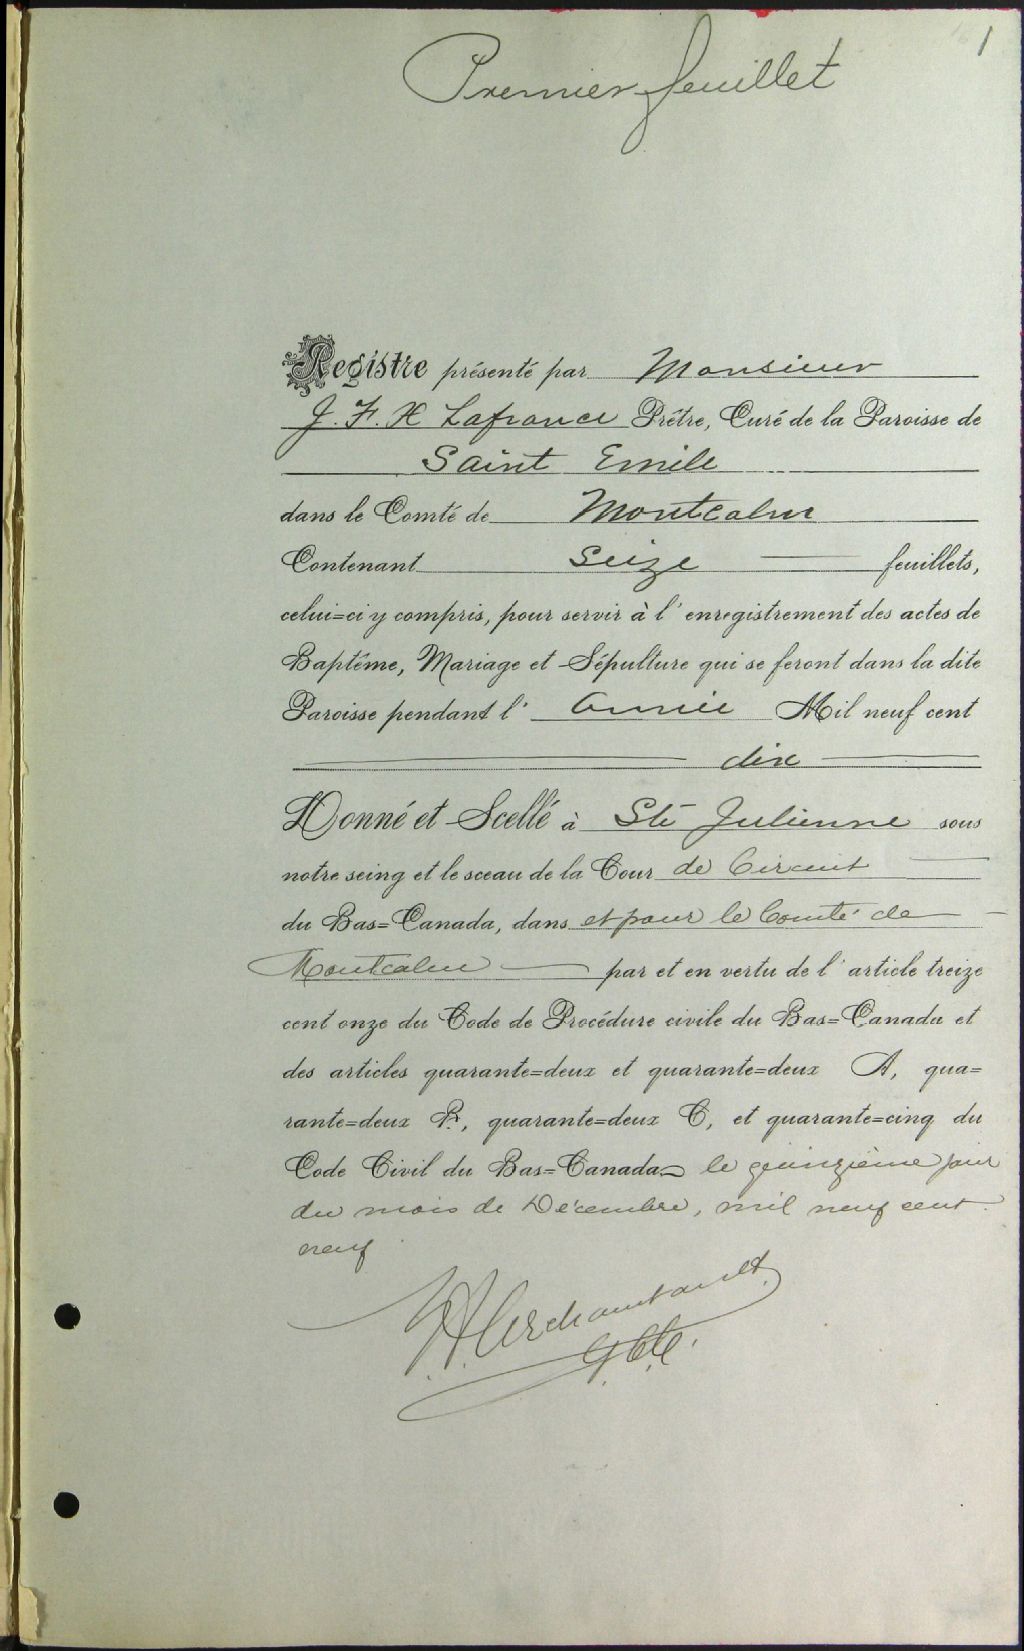 1
Premier feuillet
Registre présenté par Monsieur
J. F. H Lafrance Prêtre, Curé de la Paroisse de
Saint Emile
dans le Comté de Montcalm
Contenant Seize feuillets,
celui=ci y compris, pour servir à l'enregistrement des actes de
Baptême, Mariage et Sépulture qui se feront dans la dite
Paroisse pendant l'Année Mil neuf cent
dix
Donné et Scellé à Ste Julienne sous
notre seing et le sceau de la Cour de Circuit
du Bas=Canada, dans et pour le Comté de
Montcalm par et en vertu de l'article treize
cent onze du Code de Procédure civile du Bas=Canada et
des articles quarante=deux et quarante=deux A, qua=
rante=deux B, quarante=deux C, et quarante=cinq du
Code Civil du Bas=Canada le quinzième jour
du mois de Décembre, mil neuf cent
neuf